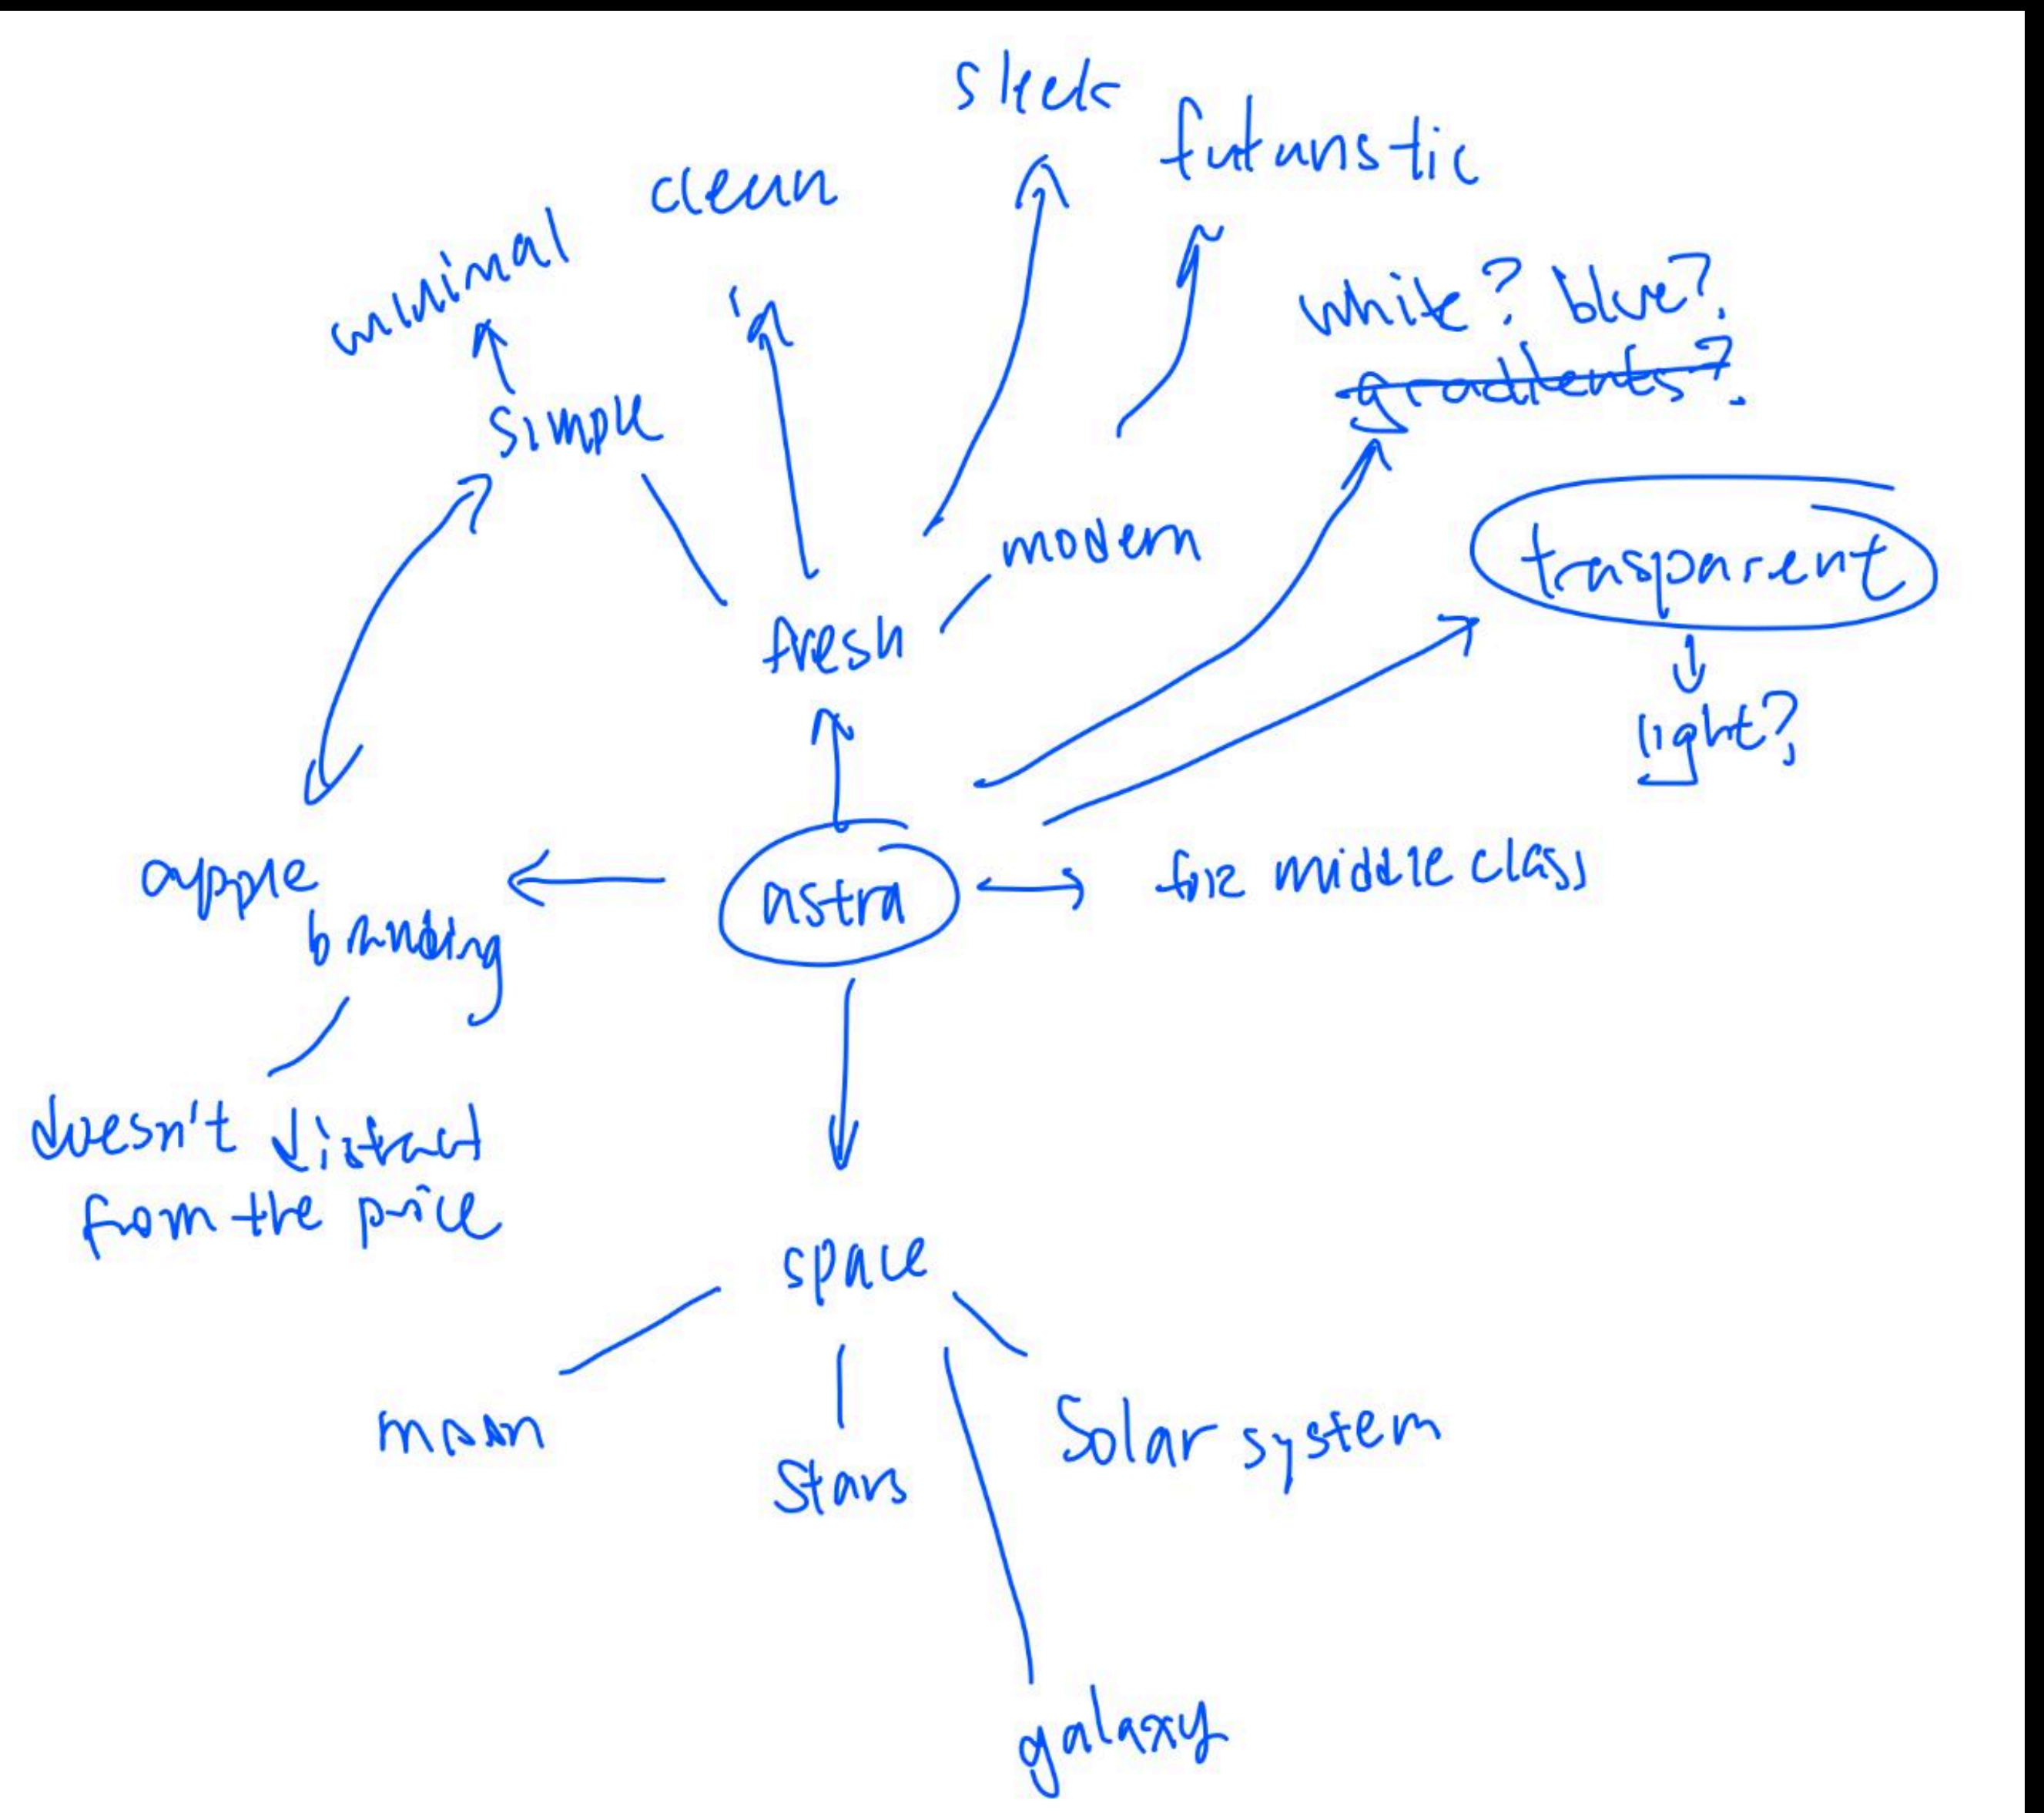 sleek
futuristic
clean
minimal
white? blue?
gradients?
simple
modern
trasparent
fresh
light?
apple
branding
astra
for middle class
doesn't distract
from the price
space
moon
stars
solar system
galaxy